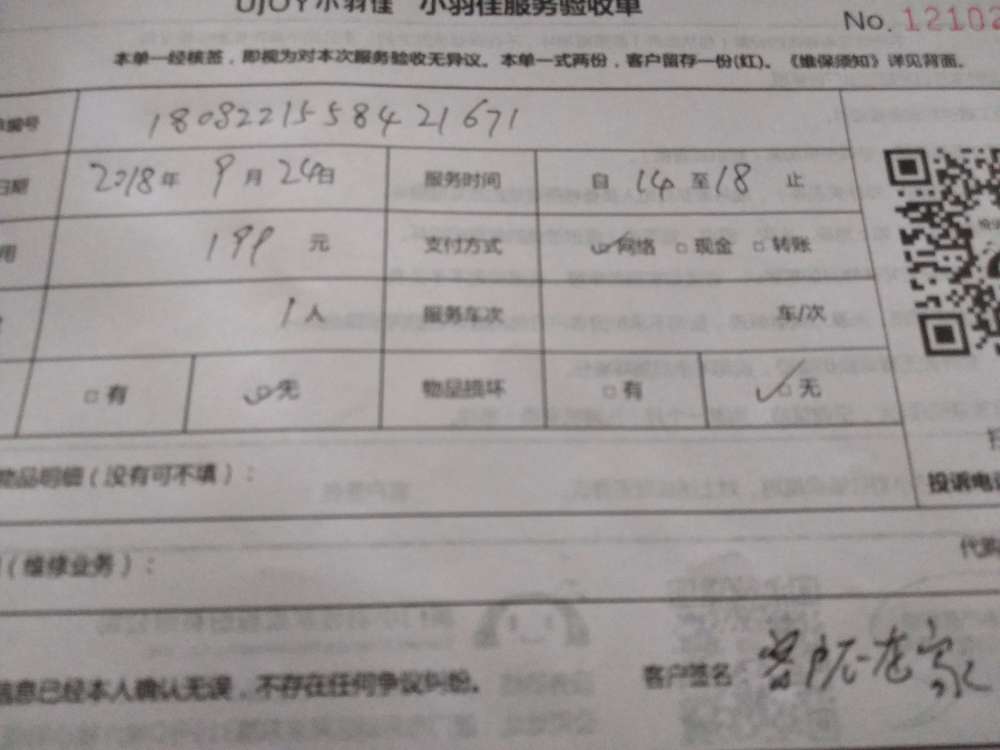 UJOY小羽佳 小羽佳服务验收单
No. 12102
本单一经核签，即视为对本次服务验收无异议。本单一式两份，客户留存一份(红)。《维保须知》详见背面。
编号 1808221558421671
日期 2018年 9月 24日 服务时间 自 14 至 18 止
用 199 元 支付方式 网络 □现金 □转账
1人 服务车次 车/次
□有 无 物品损坏 □有 □无
物品明细（没有可不填）：
投诉电话
（维修业务）：
信息已经本人确认无误，不存在任何争议纠纷。
客户签名 客户不在家